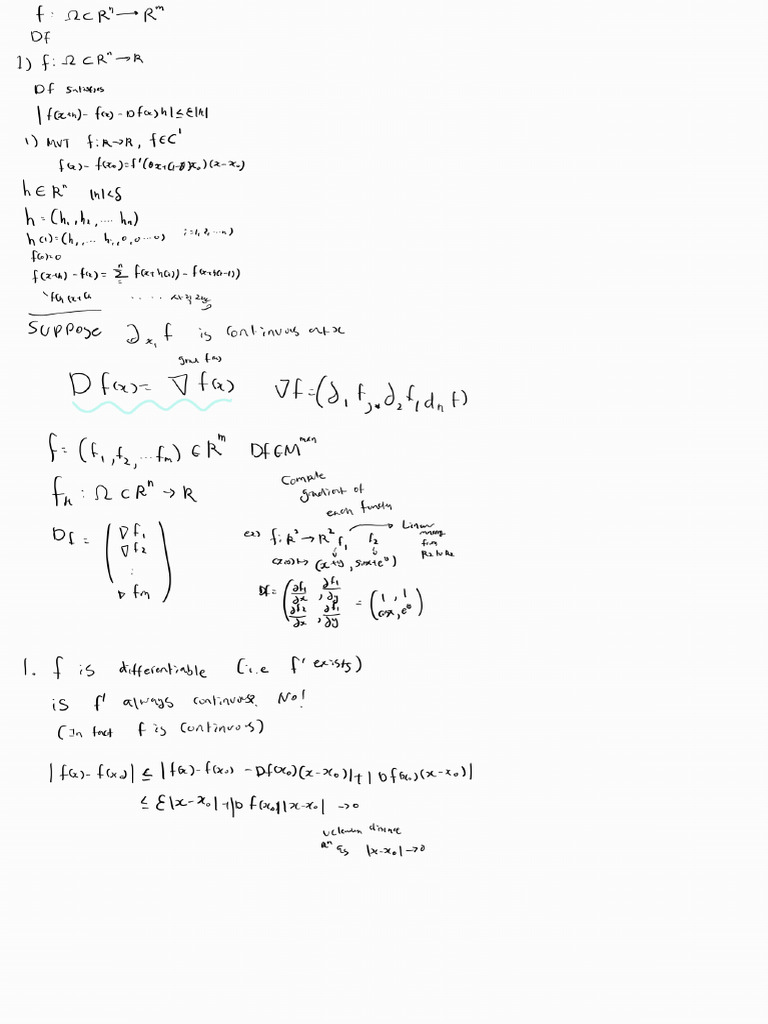 f : Ω ⊂ Rⁿ → Rᵐ
Df
1) f : Ω ⊂ Rⁿ → R
Df satisfies
|f(x+h) - f(x) - Df(x)h| ≤ ε|h|
1) MVT f: R→R, f∈C¹
f(x) - f(x₀) = f'(θx+(1-θ)x₀)(x-x₀)
h ∈ Rⁿ |h|<δ
h = (h₁, h₂, .... hₙ)
h(i) = (h₁, ... hᵢ, 0, 0 ... 0) i=1, 2, ... n)
f(x+h) - f(x) = Σ f(x+h(i)) - f(x+h(i-1))
Suppose ∂x₁ f is continuous at x
grad f(x)
Df(x) = ∇f(x) ∇f = (∂₁f, ∂₂f, dₙf)
f = (f₁, f₂, ... fₘ) ∈ Rᵐ Df∈Mᵐˣⁿ
fₖ : Ω ⊂ Rⁿ → R
Compute
gradient of
each function
Df = (∇f₁
∇f₂
:
∇fₘ)
ex) f: R² → R² f₁ f₂ → Linear
from
R2 to R2
↦ (x+y, sinx+eʸ)
Df = (∂f₁/∂x, ∂f₁/∂y
∂f₂/∂x, ∂f₁/∂y) = (1, 1
cosx, eʸ)
1. f is differentiable (i.e f' exists)
is f' always continuous. No!
(In fact f is continuous)
|f(x) - f(x₀)| ≤ |f(x) - f(x₀) - Df(x₀)(x-x₀)| + |Df(x₀)(x-x₀)|
≤ ε|x-x₀| + |Df(x₀)||x-x₀| → 0
Rⁿ as |x-x₀| → 0